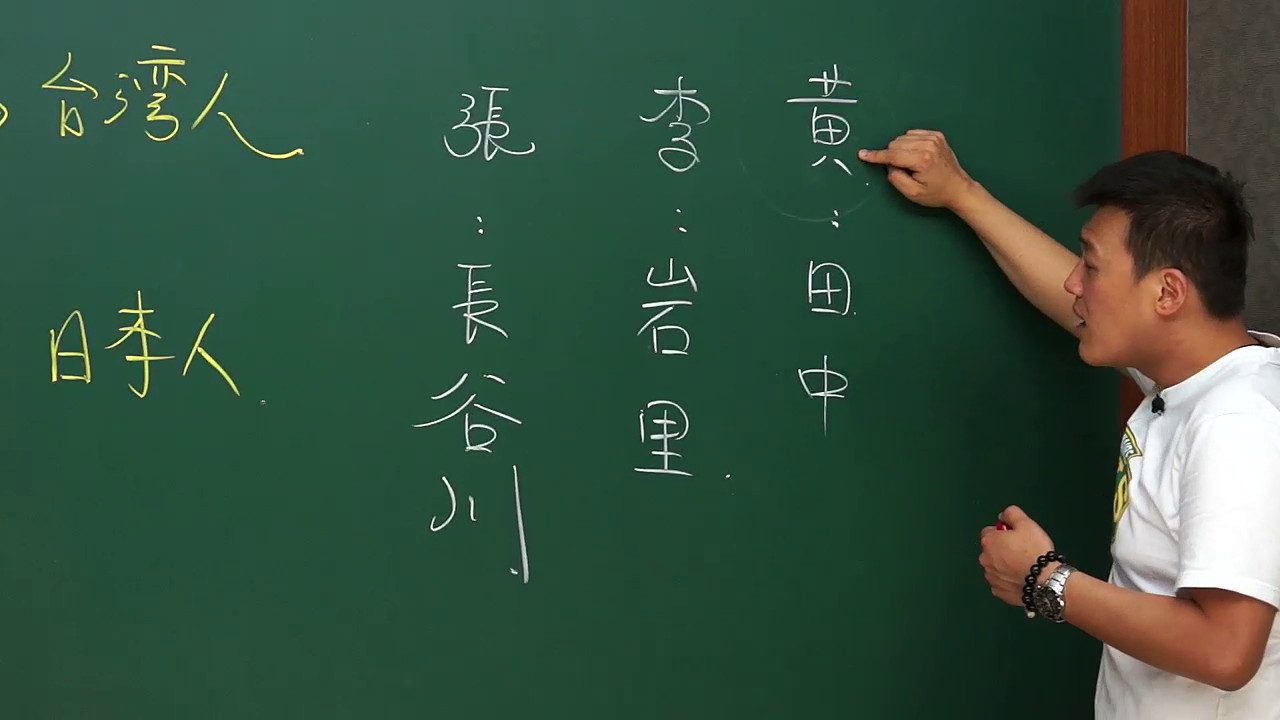 台湾人
日本人
黄:田中
李:岩里
張:長谷川